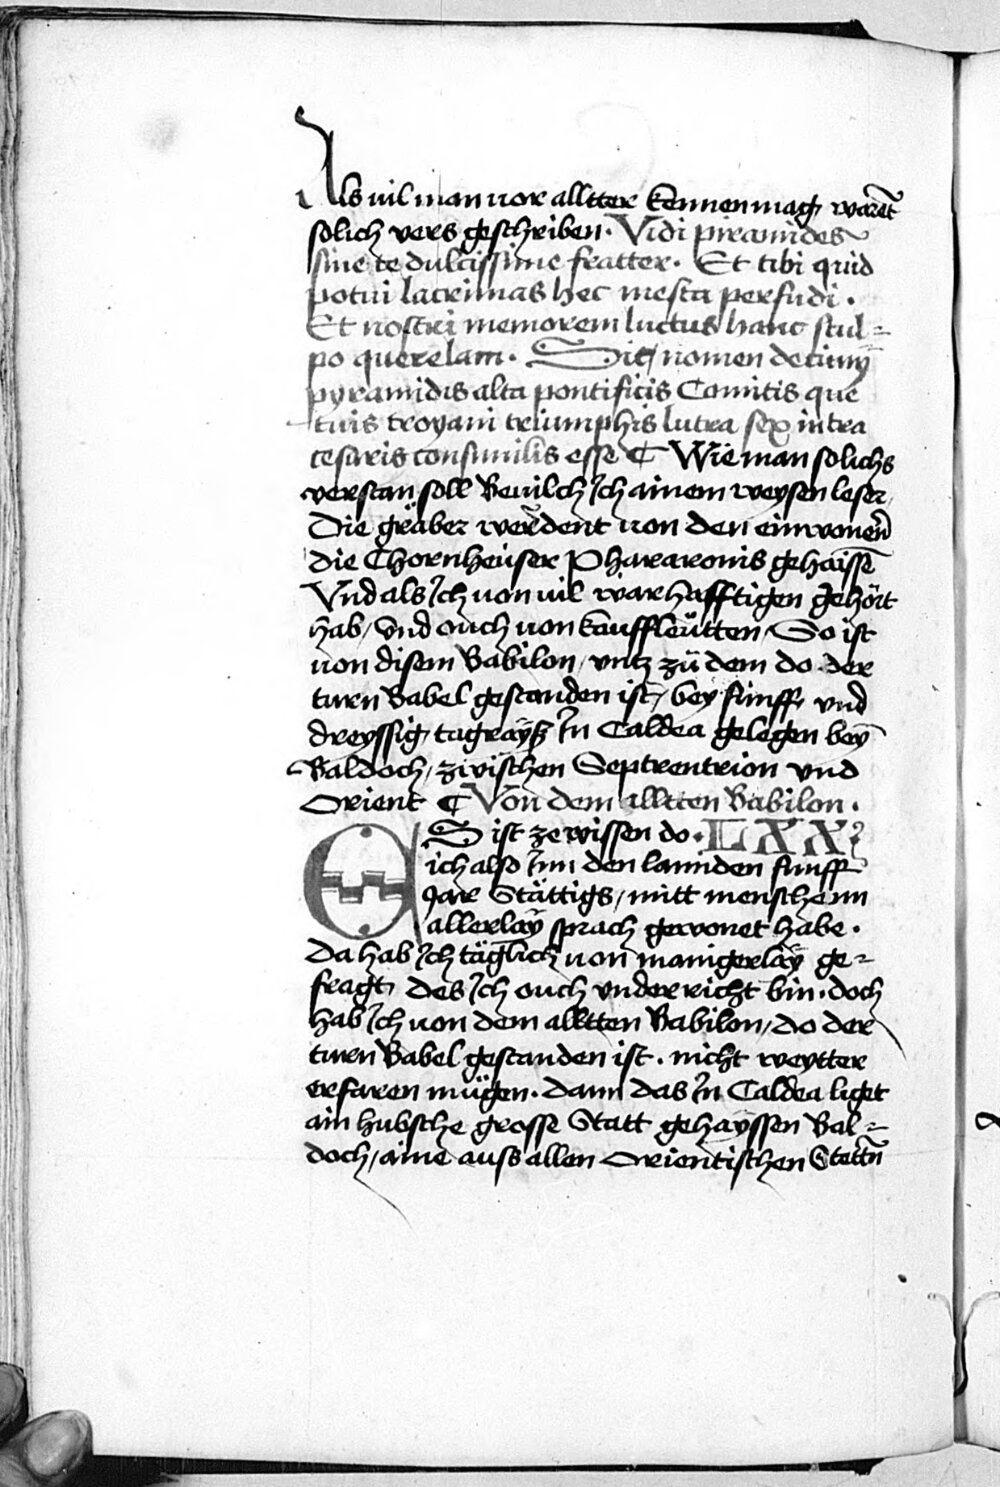 Als uil man vor alltter kennen mag, warēt
solich vers geschriben. Vidi piramides
sine te dulcissime fratter. Et tibi quid
potui lacrimas hec mesta perfudi.
Et nostri memorem luctus hanc scul=
po querelam. Sit nomen decimÿ
pyramidis alta pontificis Comitis que
tuis troyani triumphis lutra sex intra
cesaris consimilis esse ¶ Wie man solichs
verstan soll Beuilch Ich ainem weysen leser,
Die gräber werdent von den einwonern̄
die Chornheuser Phararonis gehaissē
Vnd als Ich uon uil warhafftigen gehört
hab, Vnd ouch uon kauffleütten, So ist
uon disem Babilon, vntz zü dem do der
turn Babel gestanden ist, bey fünff, vnd
dreyssig tagrayß In Caldea gelegen bey
Baldoch, zwischen Septrentrion vnd
Orient ¶ Von dem alltten Babilon.
ES ist ze wissen do. LXX
ich also Inn den lannden funff
Jare Stättigs, mitt menschenn
allerlaÿ sprach gewonet habe.
Da hab Ich täglich uon manigerlaÿ ge=
fragt, des Ich ouch vnderricht bin. doch
hab Ich uon dem alltten Babilon, do der
turn Babel gestanden ist. nicht weytter
erfaren mügen. dann das In Caldea liget
ain hubsche grosse Statt gehayssen Bal=
doch, aine auss allen Orientischen Stettn̄